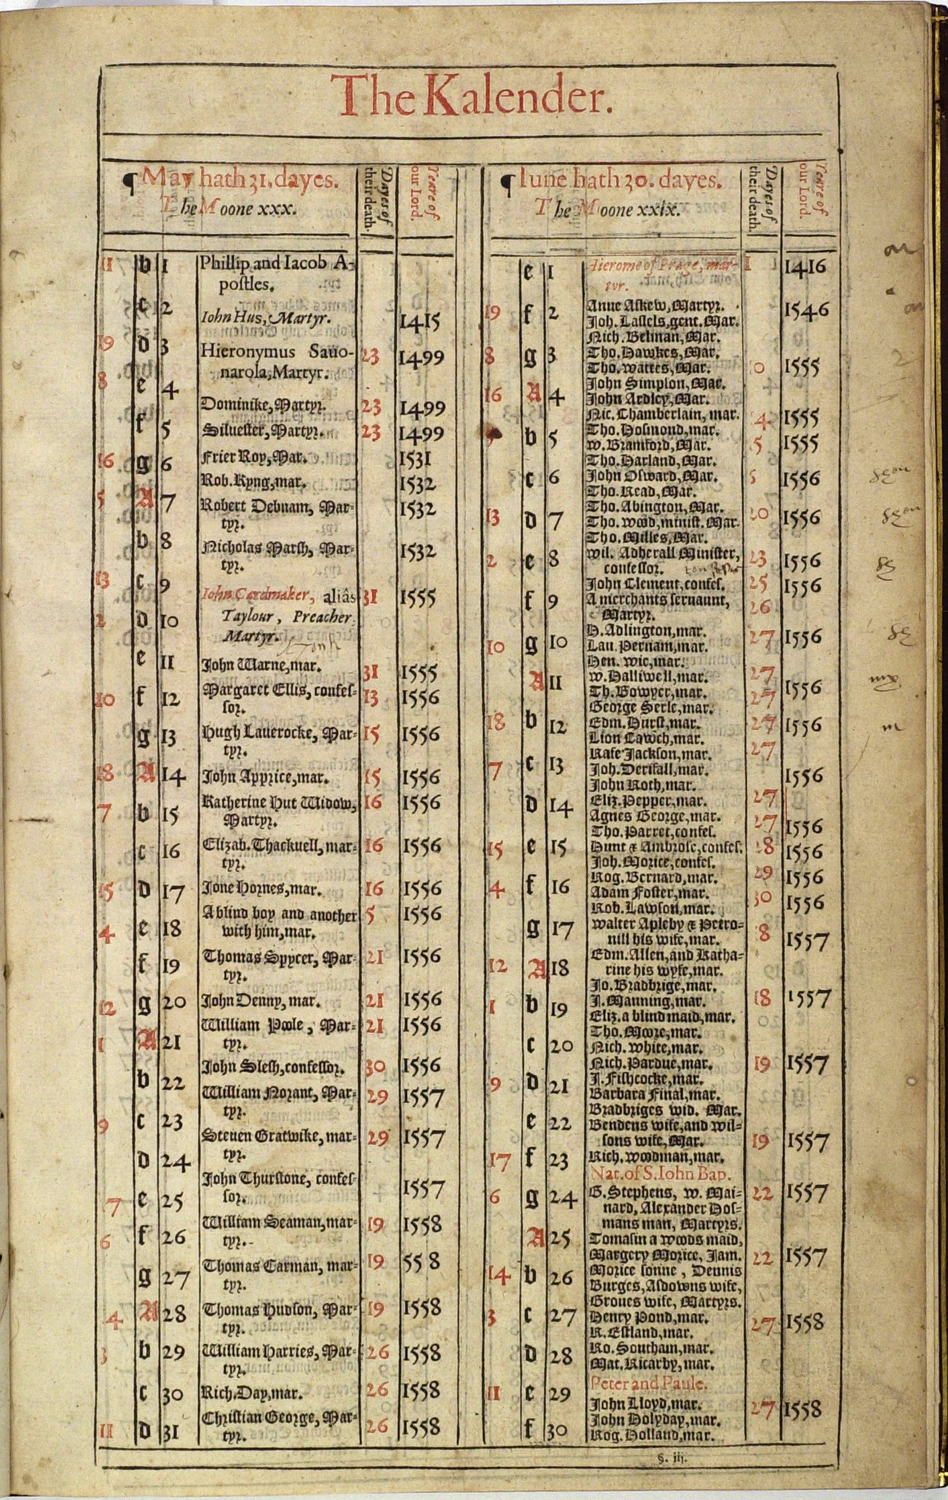 The Kalender.
¶ May hath 31. dayes.
The Moone xxx.
Dayes of their death.
Yeare of our Lord.
11 b 1 Phillip and Iacob A-
postles.
c 2 Iohn Hus, Martyr. 1415
19 d 3 Hieronymus Sauo- 23 1499
narola, Martyr.
8 e 4 Dominike, Martyr. 23 1499
f 5 Siluester, Martyr. 23 1499
16 g 6 Frier Roy, Mar. 1531
Rob. Kyng, mar. 1532
5 A 7 Robert Debnam, Mar- 1532
tyr.
b 8 Nicholas Marsh, Mar- 1532
tyr.
13 c 9 Iohn Cardmaker, aliâs 31 1555
2 d 10 Taylour, Preacher
Martyr.
e 11 John Warne, mar. 31 1555
10 f 12 Margaret Ellis, confes- 13 1556
sor.
g 13 Hugh Lauerocke, Mar- 15 1556
tyr.
18 A 14 John Apprice, mar. 15 1556
7 b 15 Katherine Hut Widow, 16 1556
Martyr.
c 16 Elizab. Thackuell, mar- 16 1556
tyr.
15 d 17 Jone Hornes, mar. 16 1556
4 e 18 A blind boy and another 5 1556
with him, mar.
f 19 Thomas Spycer, Mar- 21 1556
tyr.
12 g 20 John Denny, mar. 21 1556
1 A 21 William Poole, Mar- 21 1556
tyr.
b 22 John Slesh, confessor. 30 1556
William Norant, Mar- 29 1557
tyr.
9 c 23 Steuen Gratwike, mar- 29 1557
d 24 tyr.
John Thurstone, confes- 1557
7 e 25 sor.
6 f 26 William Seaman, mar- 19 1558
tyr.
g 27 Thomas Carman, mar- 19 558
tyr.
4 A 28 Thomas Hudson, Mar- 19 1558
tyr.
3 b 29 William Harries, Mar- 26 1558
tyr.
c 30 Rich. Day, mar. 26 1558
11 d 31 Christian George, Mar- 26 1558
tyr.
¶ Iune hath 30. dayes.
The Moone xxix.
Dayes of their death.
Yeare of our Lord.
e 1 Hierome of Prage, mar- 1 1416
tyr.
19 f 2 Anne Askew, Martyr. 1546
Joh. Lassels, gent. Mar.
Nich. Belinan, Mar.
8 g 3 Tho. Hawkes, Mar.
Tho. wattes, Mar. 0 1555
John Simpson, Mar.
16 A 4 John Ardley, Mar.
Nic. Chamberlain, mar. 4 1555
Tho. Hosmond, mar.
b 5 w. Bramford, Mar. 5 1555
Tho. Harland, Mar.
c 6 John Osward, Mar. 1556
Tho. Read, Mar.
Tho. Abington, Mar. 20 1556
13 d 7 Tho. wood, minist. Mar.
Tho. Milles, Mar.
2 e 8 wil. Adherall Minister, 23 1556
confessor.
John Clement, confes. 25 1556
f 9 A merchants seruaunt, 26
Martyr.
H. Adlington, mar. 27 1556
10 g 10 Lau. Pernam, mar.
Hen. wic, mar.
A 11 w. Halliwell, mar. 27 1556
Th. Bowyer, mar. 27
George Serle, mar.
18 b 12 Edm. Hurst, mar. 27 1556
Lion Cawch, mar.
Rafe Jackson, mar. 27
7 c 13 Joh. Derifall, mar. 1556
John Roth, mar.
d 14 Eliz. Pepper, mar. 27
Agnes George, mar. 27 1556
Tho. Parret, confes.
15 e 15 Hunt & Ambrose, confes. 28 1556
Joh. Morice, confes.
4 f 16 Rog. Bernard, mar. 29 1556
Adam Foster, mar. 30 1556
Rob. Lawson, mar.
g 17 walter Apleby & Petro- 8 1557
nill his wife, mar.
12 A 18 Edm. Allen, and Katha-
rine his wyfe, mar.
Jo. Bradbrige, mar. 18 1557
1 b 19 J. Manning, mar.
Eliz. a blind maid, mar.
Tho. Moore, mar.
c 20 Nich. white, mar.
Nich. Pardue, mar. 19 1557
9 d 21 J. Fishcocke, mar.
Barbara Final, mar.
Bradbriges wid. Mar.
e 22 Bendens wife, and wil-
sons wife, Mar. 19 1557
17 f 23 Rich. woodman, mar.
Nat. of S. Iohn Bap.
6 g 24 G. Stephens, w. Mai- 22 1557
nard, Alexander Hos-
mans man, Martyrs.
A 25 Tomasin a woods maid,
Margery Morice, Jam. 22 1557
14 b 26 Morice sonne, Dennis
Burges, Asdowns wife,
Groues wife, Martyrs.
3 c 27 Henry Pond, mar. 27 1558
R. Estland, mar.
d 28 Ro. Southam, mar.
Mat. Ricarby, mar.
11 e 29 Peter and Paule.
John Lloyd, mar. 27 1558
f 30 John Holyday, mar.
Rog. Holland, mar.
§. iij.